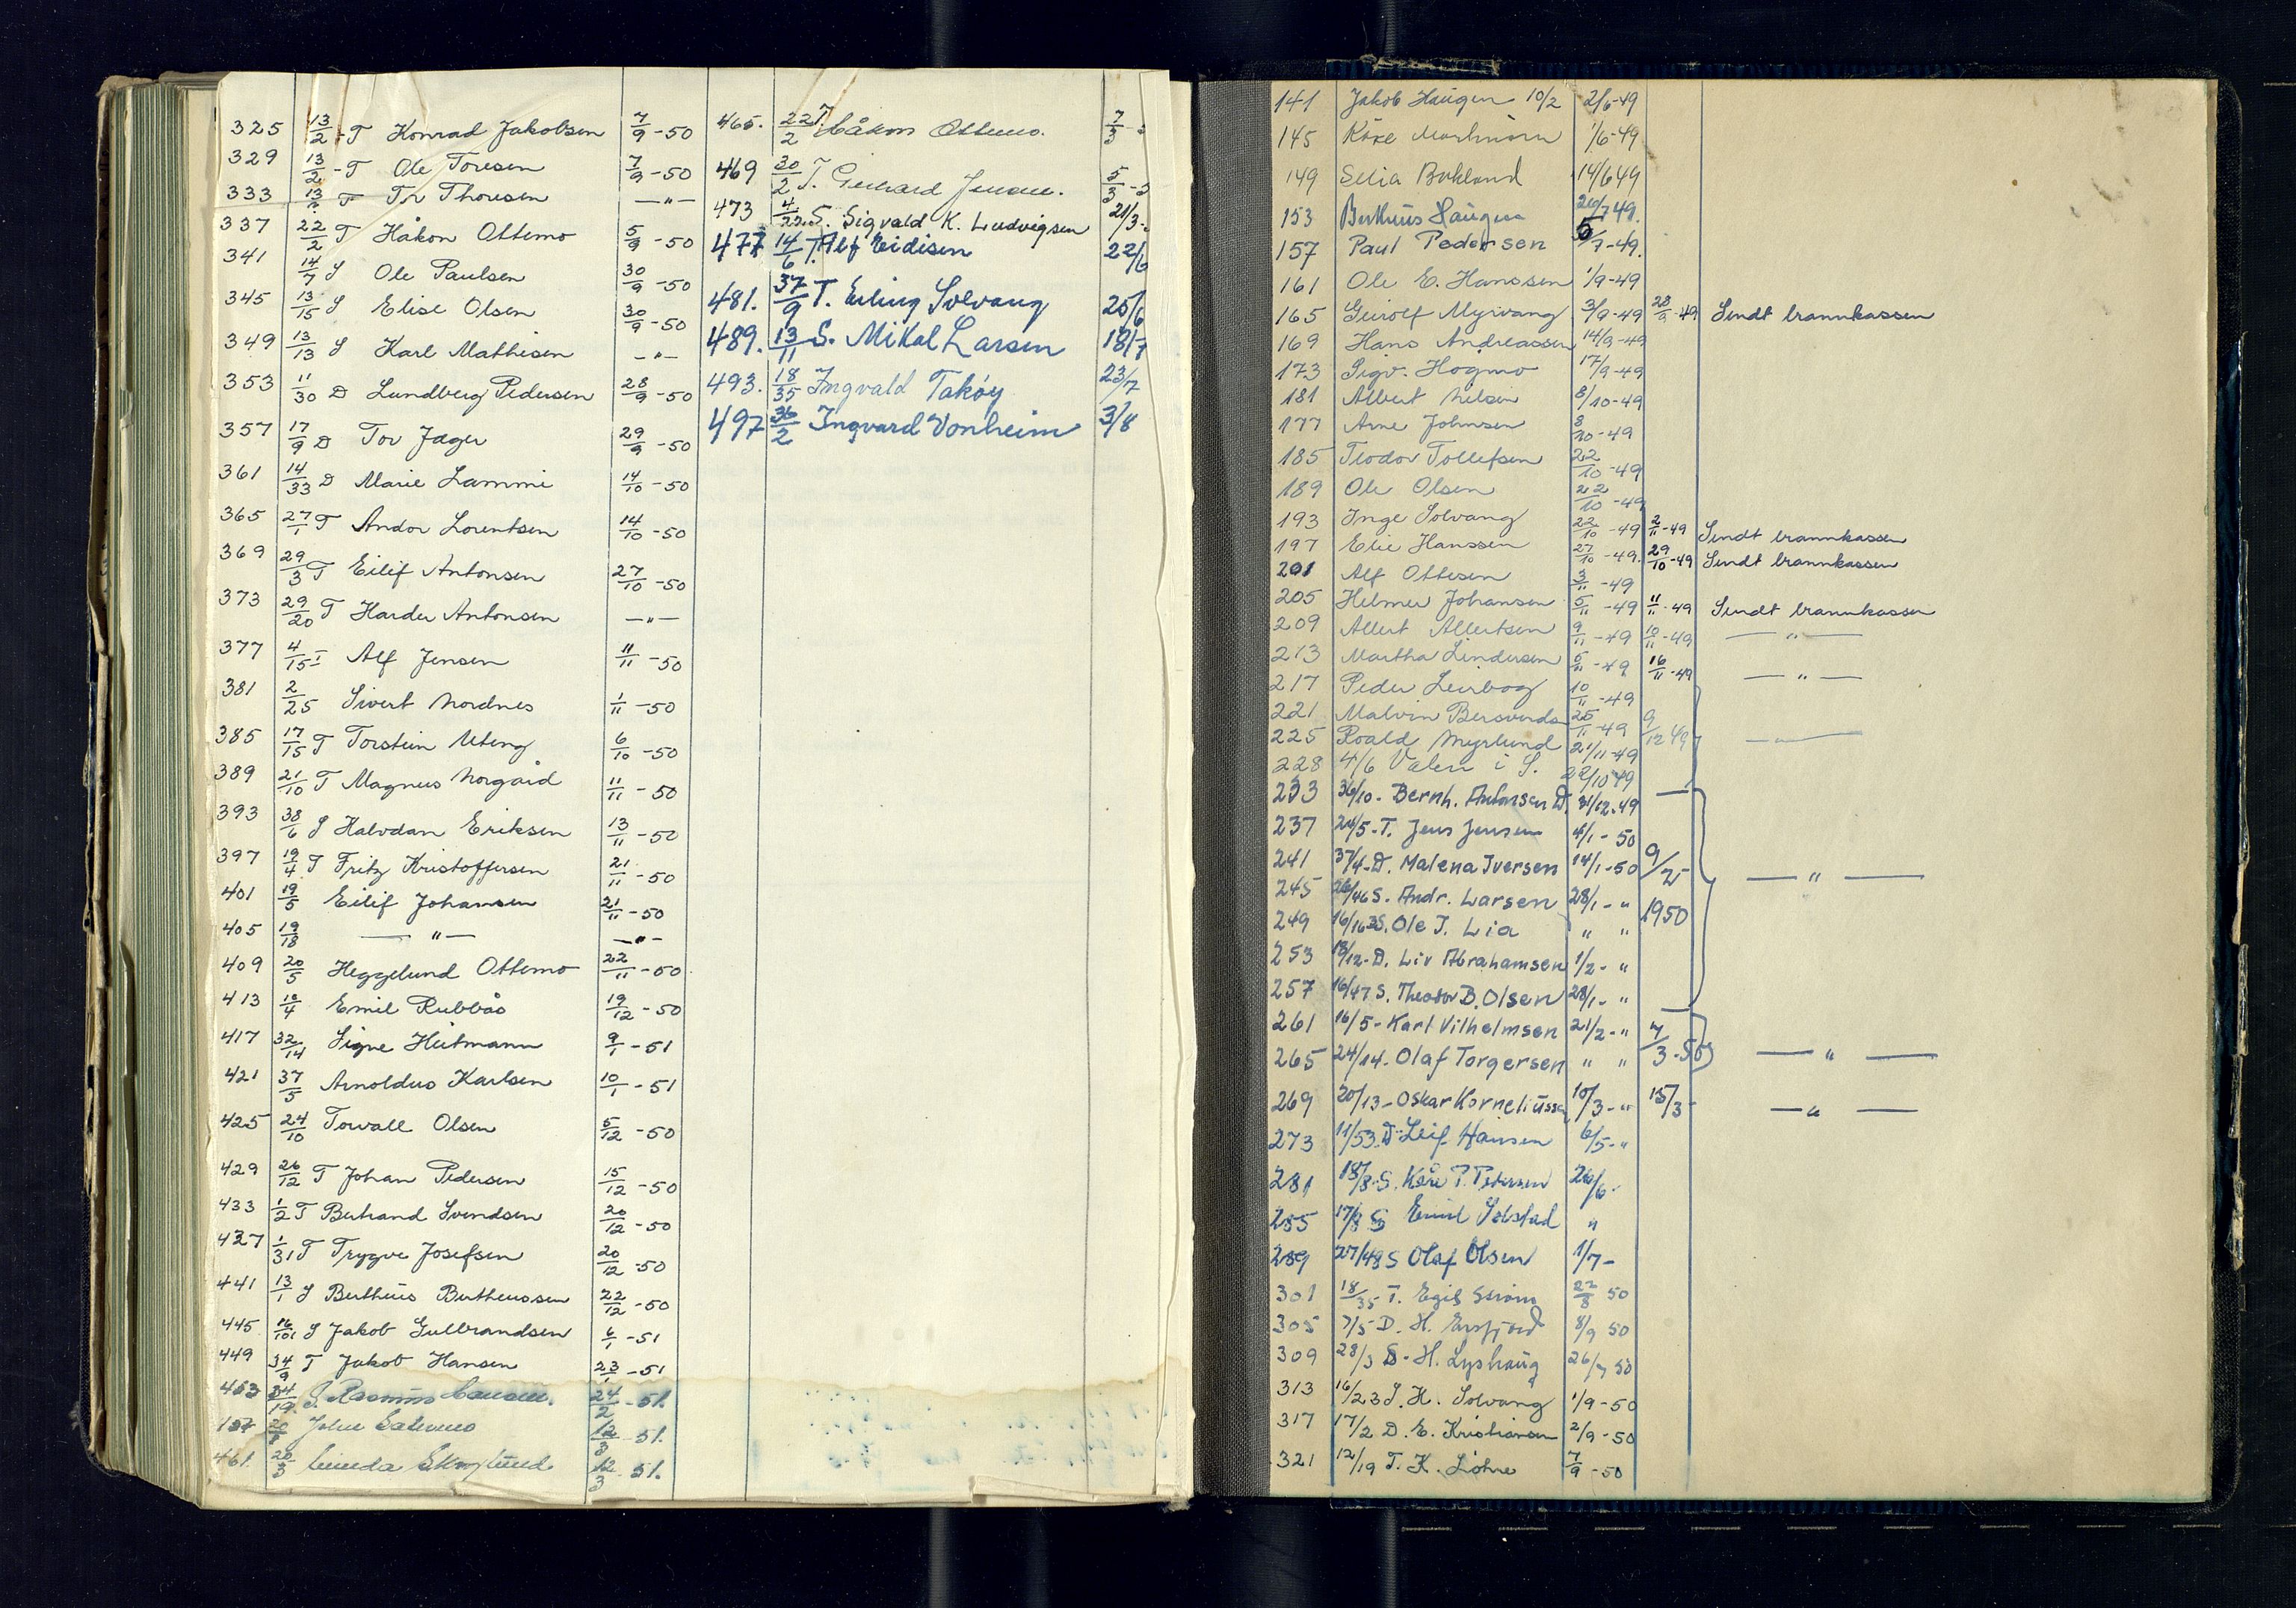 325 13/2 - T Konrad Jakobsen 7/9 - 50
329 13/2 - T Ole Toresen 7/9 - 50
333 13/2 T Tr Thoresen — " —
337 22/2 T Håkon Ottemo 5/9 - 50
341 14/7 S Ole Paulsen 30/9 - 50
345 13/15 S Elise Olsen 30/9 - 50
349 13/13 S Karl Mathisen - " -
353 11/30 D Lundberg Pedersen 28/9 - 50
357 17/9 D Tor Jæger 29/9 - 50
361 14/33 D Marie Lammi 14/10 - 50
365 27/1 T Andor Lorentsen 14/10 - 50
369 29/3 T Eilif Antonsen 27/10 - 50
373 29/20 T Harder Antonsen — " —
377 4/15 T Alf Jensen 11/11 - 50
381 2/25 Sivert Nordnes 1/11 - 50
385 17/15 T Torstein Uteng 6/10 - 50
389 21/10 T Magnus Norgård 11/11 - 50
393 38/6 S Halvdan Eriksen 13/11 - 50
397 19/4 T Fritz Kristoffersen 21/11 - 50
401 19/5 Eilif Johansen 21/11 - 50
405 19/18 — " — — " —
409 20/5 Heggelund Ottemo 22/11 - 50
413 10/4 Emil Rubbås 19/12 - 50
417 32/14 Signe Heitmann 9/1 - 51
421 37/5 Arnoldus Karlsen 10/1 - 51
425 24/10 Torvall Olsen 5/12 - 50
429 26/12 T Johan Pedersen 15/12 - 50
433 1/2 T Bertrand Svendsen 20/12 - 50
437 1/31 T Trygve Josefsen 20/12 - 50
441 13/1 S Bertheus Bertheussen 22/12 - 50
445 16/101 S Jakob Gulbrandsen 6/1 - 51
449 34/9 T Jakob Hansen 23/1 - 51
453 34/19 Rasmus 24/2 - 51.
457 John 12/3 51.
461. 20/3 12/3 51.
465. 22/2 T. Håkon Ottemo. 7/3
469 30/2 T. Gerhard Jensen. 5/3
473 4/22 S. Sigvald K. Ludvigsen 21/3
477 14/6 T. Alf Eidisen 22/6
481. 37/9 T. Erling Solvang 25/6
489. 13/11 S. Mikal Larsen 18/7
493. 18/35 Ingvald Takøy 23/7
497 36/2 Ingvard Vonheim 3/8
141 Jakob Haugen 10/2 2/6-49
145 Kåre 1/6-49
149 Selia Bakland 14/6 49
153 Bertheus Haugen 26/7 49.
157 Paul Pedersen 5/7-49.
161 Ole E. Hanssen 1/9-49
165 Geirolf Myrvang 3/9-49 28/9-49 Sendt brannkassen
169 Hans Andreassen 14/9-49
173 Sigv. Hogmo 17/9-49
181 Albert Nilsen 8/10-49
177 Arne Johnsen 8/10-49
185 Teodor Tollefsen 22/10-49
189 Ole Olsen 22/10-49
193 Inge Solvang 22/10-49 2/11-49 Sendt brannkassen
197 Elie Hanssen 27/10-49. 29/10-49 Sendt brannkassen
201 Alf Ottesen 3/11-49
205 Helmer Johansen 5/11-49 11/11-49 Sendt brannkassen
209 Albert Albertsen 9/11-49 10/11-49 — " —
213 Martha Lindersen 5/11-49 16/11-49 — " —
217 Peder Leirbog 10/11-49
221 Malvin Bersvends 25/11-49
225 Roald Myrlund 21/11-49 9/12 49 — " —
228 4/6 Valen i S. 22/10 49
233 36/10 - Bernh. Antonsen D. 31/12.49
237 24/5 - T. Jens Jensen 4/1 - 50
241 37/4 - D. Malena Iversen 14/1 - 50 9/2 — " —
245 26/46 S. Andr. Larsen 28/1 - " 1950
249 16/163 S. Ole J. Lia " "
253 18/12 - D. Liv Abrahamsen 1/2 - "
257 16/47 S. Theodor B. Olsen 28/1 - "
261 16/5 - Karl Vilhelmsen 21/2 - " 7/3 - 50
265 24/14 - Olaf Torgersen " " — " —
269 20/13 - Oskar Korneliussen 10/3 - " 15/3 — " —
273 11/53. D. Leif Hansen 6/5 - "
281 18/8 - S. Kåre P. Pedersen 26/6.
285 17/8 S Emil Solstad "
289 27/48 S Olaf Olsen 1/7 -
301 18/35 T. Egil Strøm 22/8 50
305 7/5 D. H. Ersfjord 8/9 50
309 28/3 S - H. Lyshaug 26/7 50
313 16/23 S. H. Solvang 1/9 - 50
317 17/2 D. E. Kristiansen 2/9 - 50
321 12/19 T. K. Løhre 7/9 - 50